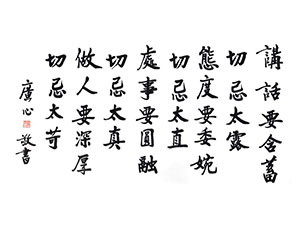 講話要含蓄
切忌太露
態度要委婉
切忌太直
處事要圓融
切忌太真
做人要深厚
切忌太苛
廣心
敬書